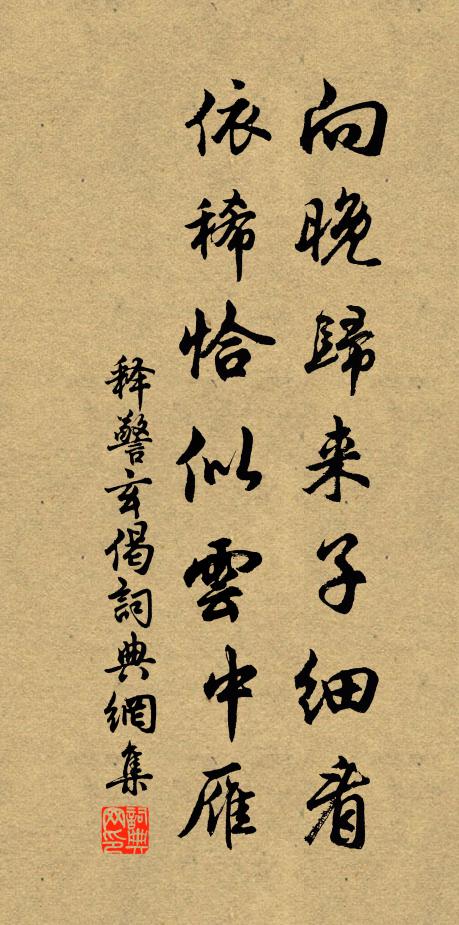 向晚歸来子細看
依稀恰似雲中雁
释警玄偈詞典網集
詞典网印